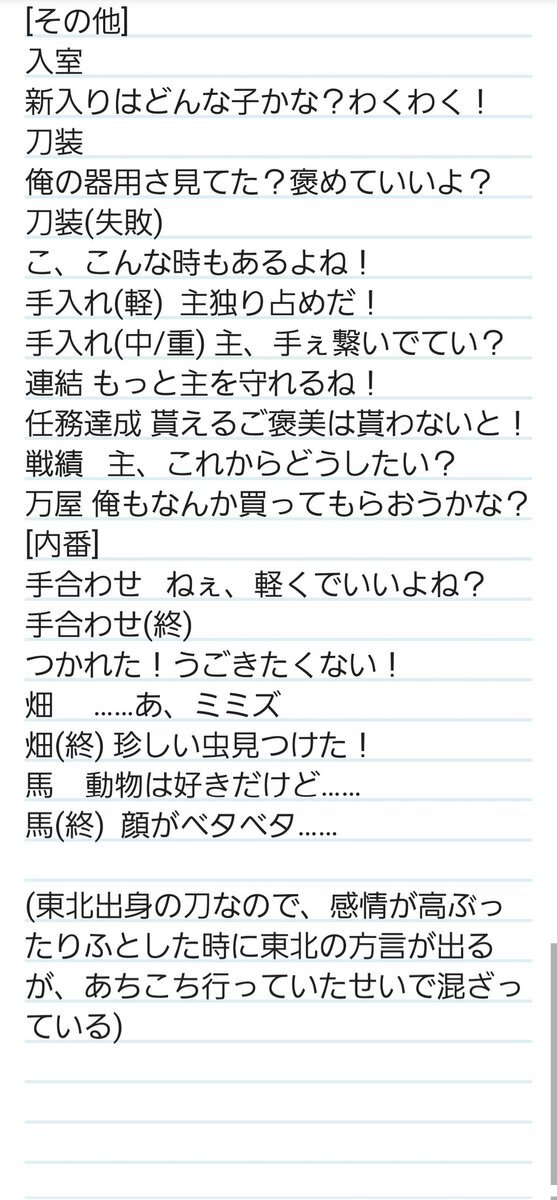 [その他]
入室
新入りはどんな子かな？わくわく！
刀装
俺の器用さ見てた？褒めていいよ？
刀装(失敗)
こ、こんな時もあるよね！
手入れ(軽) 主独り占めだ！
手入れ(中/重) 主、手ぇ繋いでてい？
連結 もっと主を守れるね！
任務達成 貰えるご褒美は貰わないと！
戦績　主、これからどうしたい？
万屋 俺もなんか買ってもらおうかな？
[内番]
手合わせ　ねぇ、軽くでいいよね？
手合わせ(終)
つかれた！うごきたくない！
畑　……あ、ミミズ
畑(終) 珍しい虫見つけた！
馬　動物は好きだけど……
馬(終) 顔がベタベタ……
(東北出身の刀なので、感情が高ぶっ
たりふとした時に東北の方言が出る
が、あちこち行っていたせいで混ざっ
ている)